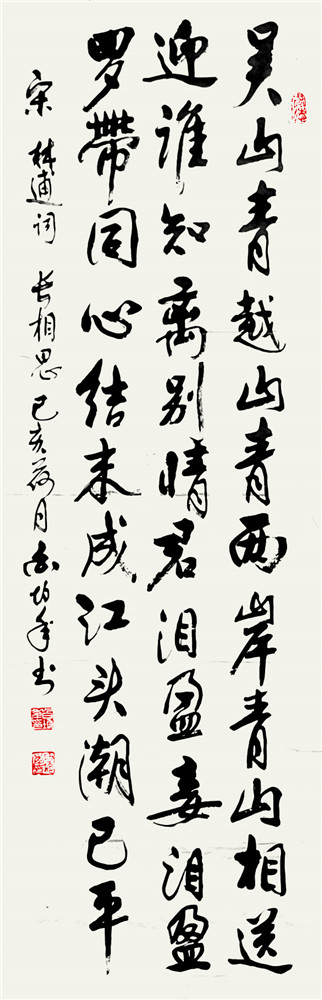 吴山青越山青两岸青山相送
迎谁知离别情君泪盈妾泪盈
罗帶同心结未成江头潮已平
宋 林逋词 长相思 己亥荷月 书